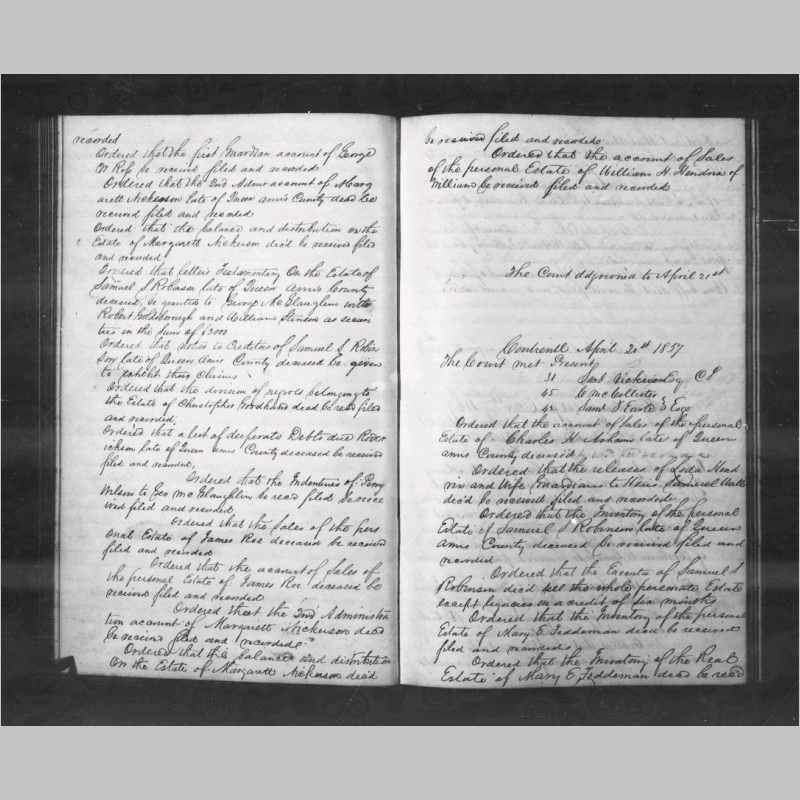 recorded
Ordered that the first Guardian account of George
W Roe be receivd filed and recorded
Ordered that the 2nd Admr account of Marg
arett Nickerson late of Queen Anns County decd be
receivd filed and recorded
Ordered that the balance and distribution on the
Estate of Margarett Nickerson decd be receivd filed
and recorded
Ordered that letters Testamentory On the Estate of
Samuel S Robinson late of Queen Anns County
deceased be granted to George McGlaughlin with
Robert Goldsborough and William Stinson as securi
ties in the Sum of $3000
Ordered that notice to Creditors of Samuel S Robin
son late of Queen Anns County deceased be given
to exhibit their Claims
Ordered that the division of negroes belonging to
the Estate of Christopher Goodhand decd be recd filed
and recorded
Ordered that a list of desperate Debts due
late of Queen Anns County deceased be received
filed and recorded
Ordered that the Indentures of Perry
Wilson to Geo McGlaughlin be recd filed be recei
ved filed and recorded
Ordered that the Sales of the pers
onal Estate of James Roe deceased be received
filed and recorded
Ordered that the account of Sales of
the personal Estate of James Roe deceased be
received filed and recorded
Ordered that the 2nd Administra
tion account of Margarett Nickerson decd
be receivd filed and recorded
Ordered that the balance and distribution
On the Estate of Margarett Nickerson decd
be received filed and recorded
Ordered that the account of Sales
of the personal Estate of William H. Hendrix of
William be received filed and recorded
The Court adjourned to April 21st
April 21st 1837
The Court met Present
31 Saml Nickerson Esq C J
45 C McCollister
42 Saml T Earle 3 Esqs
Ordered that the account of Sales of the personal
Estate of Charles H Asham late of Queen
Anns County deceasd
Ordered that the releases of Hend
rix and Wife Guardians to Heirs Samuel Walls
decd be received filed and recorded
Ordered that the Inventory of the personal
Estate of Samuel S Robinson late of Queen
Anns County deceased be received filed and
recorded
Ordered that the Executor of Samuel S
Robinson decd sel the whole personal Estate
except legacies on a credit of six months
Ordered that the Inventory of the personal
Estate of Mary E Teddeman decd be received
filed and recorded
Ordered that the Inventory of the Real
Estate of Mary E Teddeman decd be recd